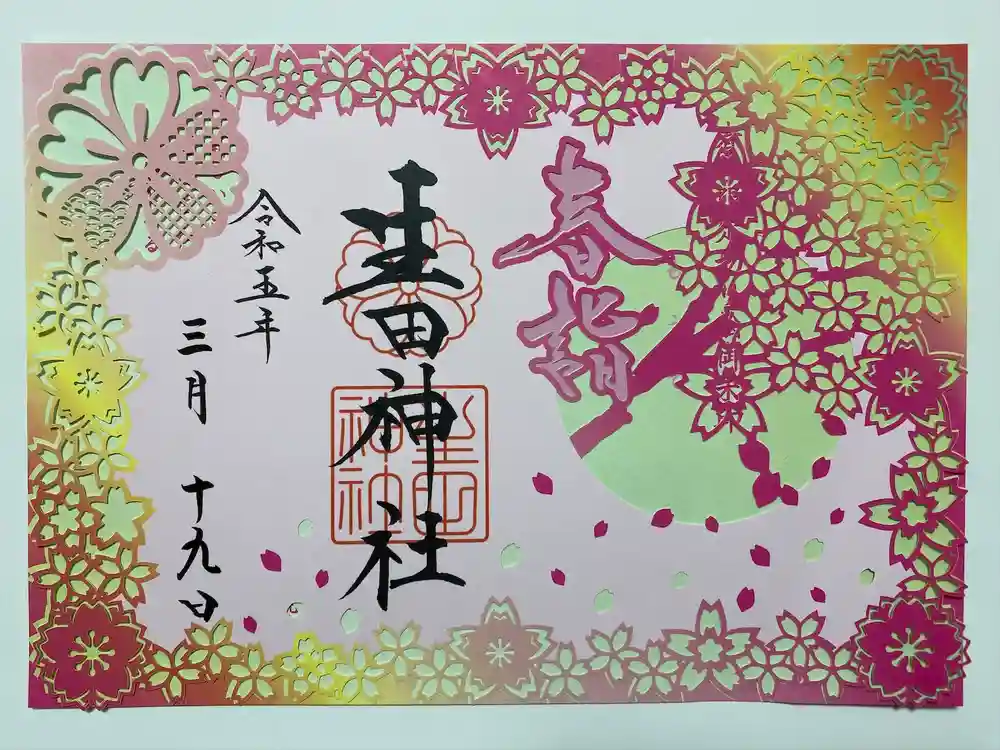 春詣
生田神社
生田神社
令和五年
三月 十九日